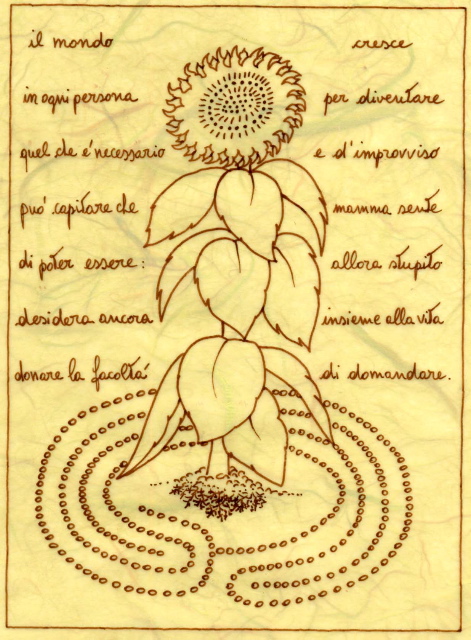 il mondo cresce
in ogni persona per diventare
quel che é necessario e d'improvviso
può capitare che mamma sente
di poter essere: allora stupito
desidera ancora insieme alla vita
donare la facoltà di domandare.